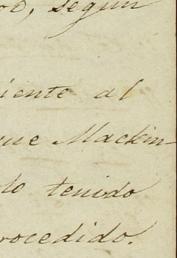 según
iente al
que Mackin-
to tenido
rocedido.